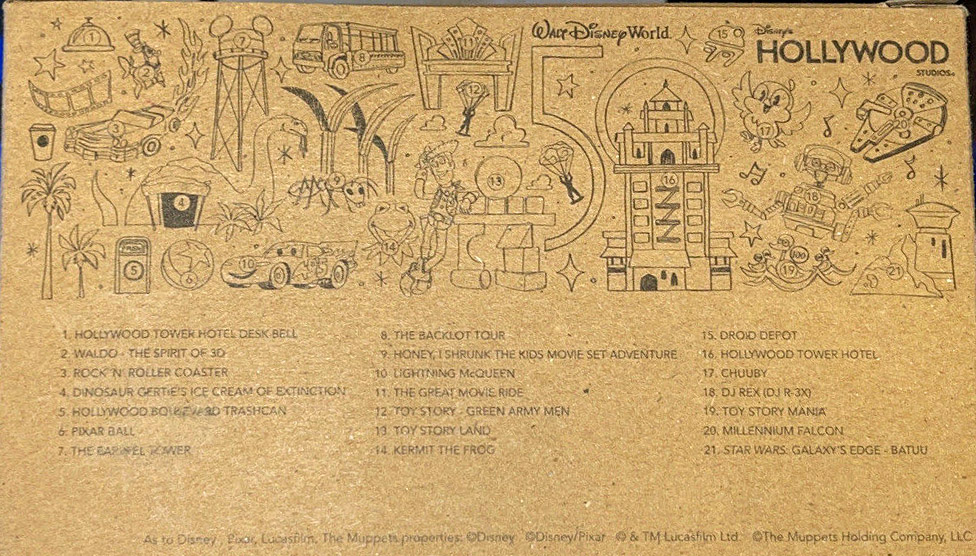 WALT DISNEY WORLD
DISNEY'S
HOLLYWOOD
STUDIOS®
1. HOLLYWOOD TOWER HOTEL DESK BELL
2. WALDO - THE SPIRIT OF 3D
3. ROCK 'N' ROLLER COASTER
4. DINOSAUR GERTIE'S ICE CREAM OF EXTINCTION
5. HOLLYWOOD BOULEVARD TRASHCAN
6. PIXAR BALL
7. THE EARFFEL TOWER
8. THE BACKLOT TOUR
9. HONEY, I SHRUNK THE KIDS MOVIE SET ADVENTURE
10. LIGHTNING McQUEEN
11. THE GREAT MOVIE RIDE
12. TOY STORY - GREEN ARMY MEN
13. TOY STORY LAND
14. KERMIT THE FROG
15. DROID DEPOT
16. HOLLYWOOD TOWER HOTEL
17. CHUUBY
18. DJ REX (DJ R-3X)
19. TOY STORY MANIA
20. MILLENNIUM FALCON
21. STAR WARS: GALAXY'S EDGE - BATUU
As to Disney, Pixar, Lucasfilm, The Muppets properties: ©Disney ©Disney/Pixar © & TM Lucasfilm Ltd. ©The Muppets Holding Company, LLC